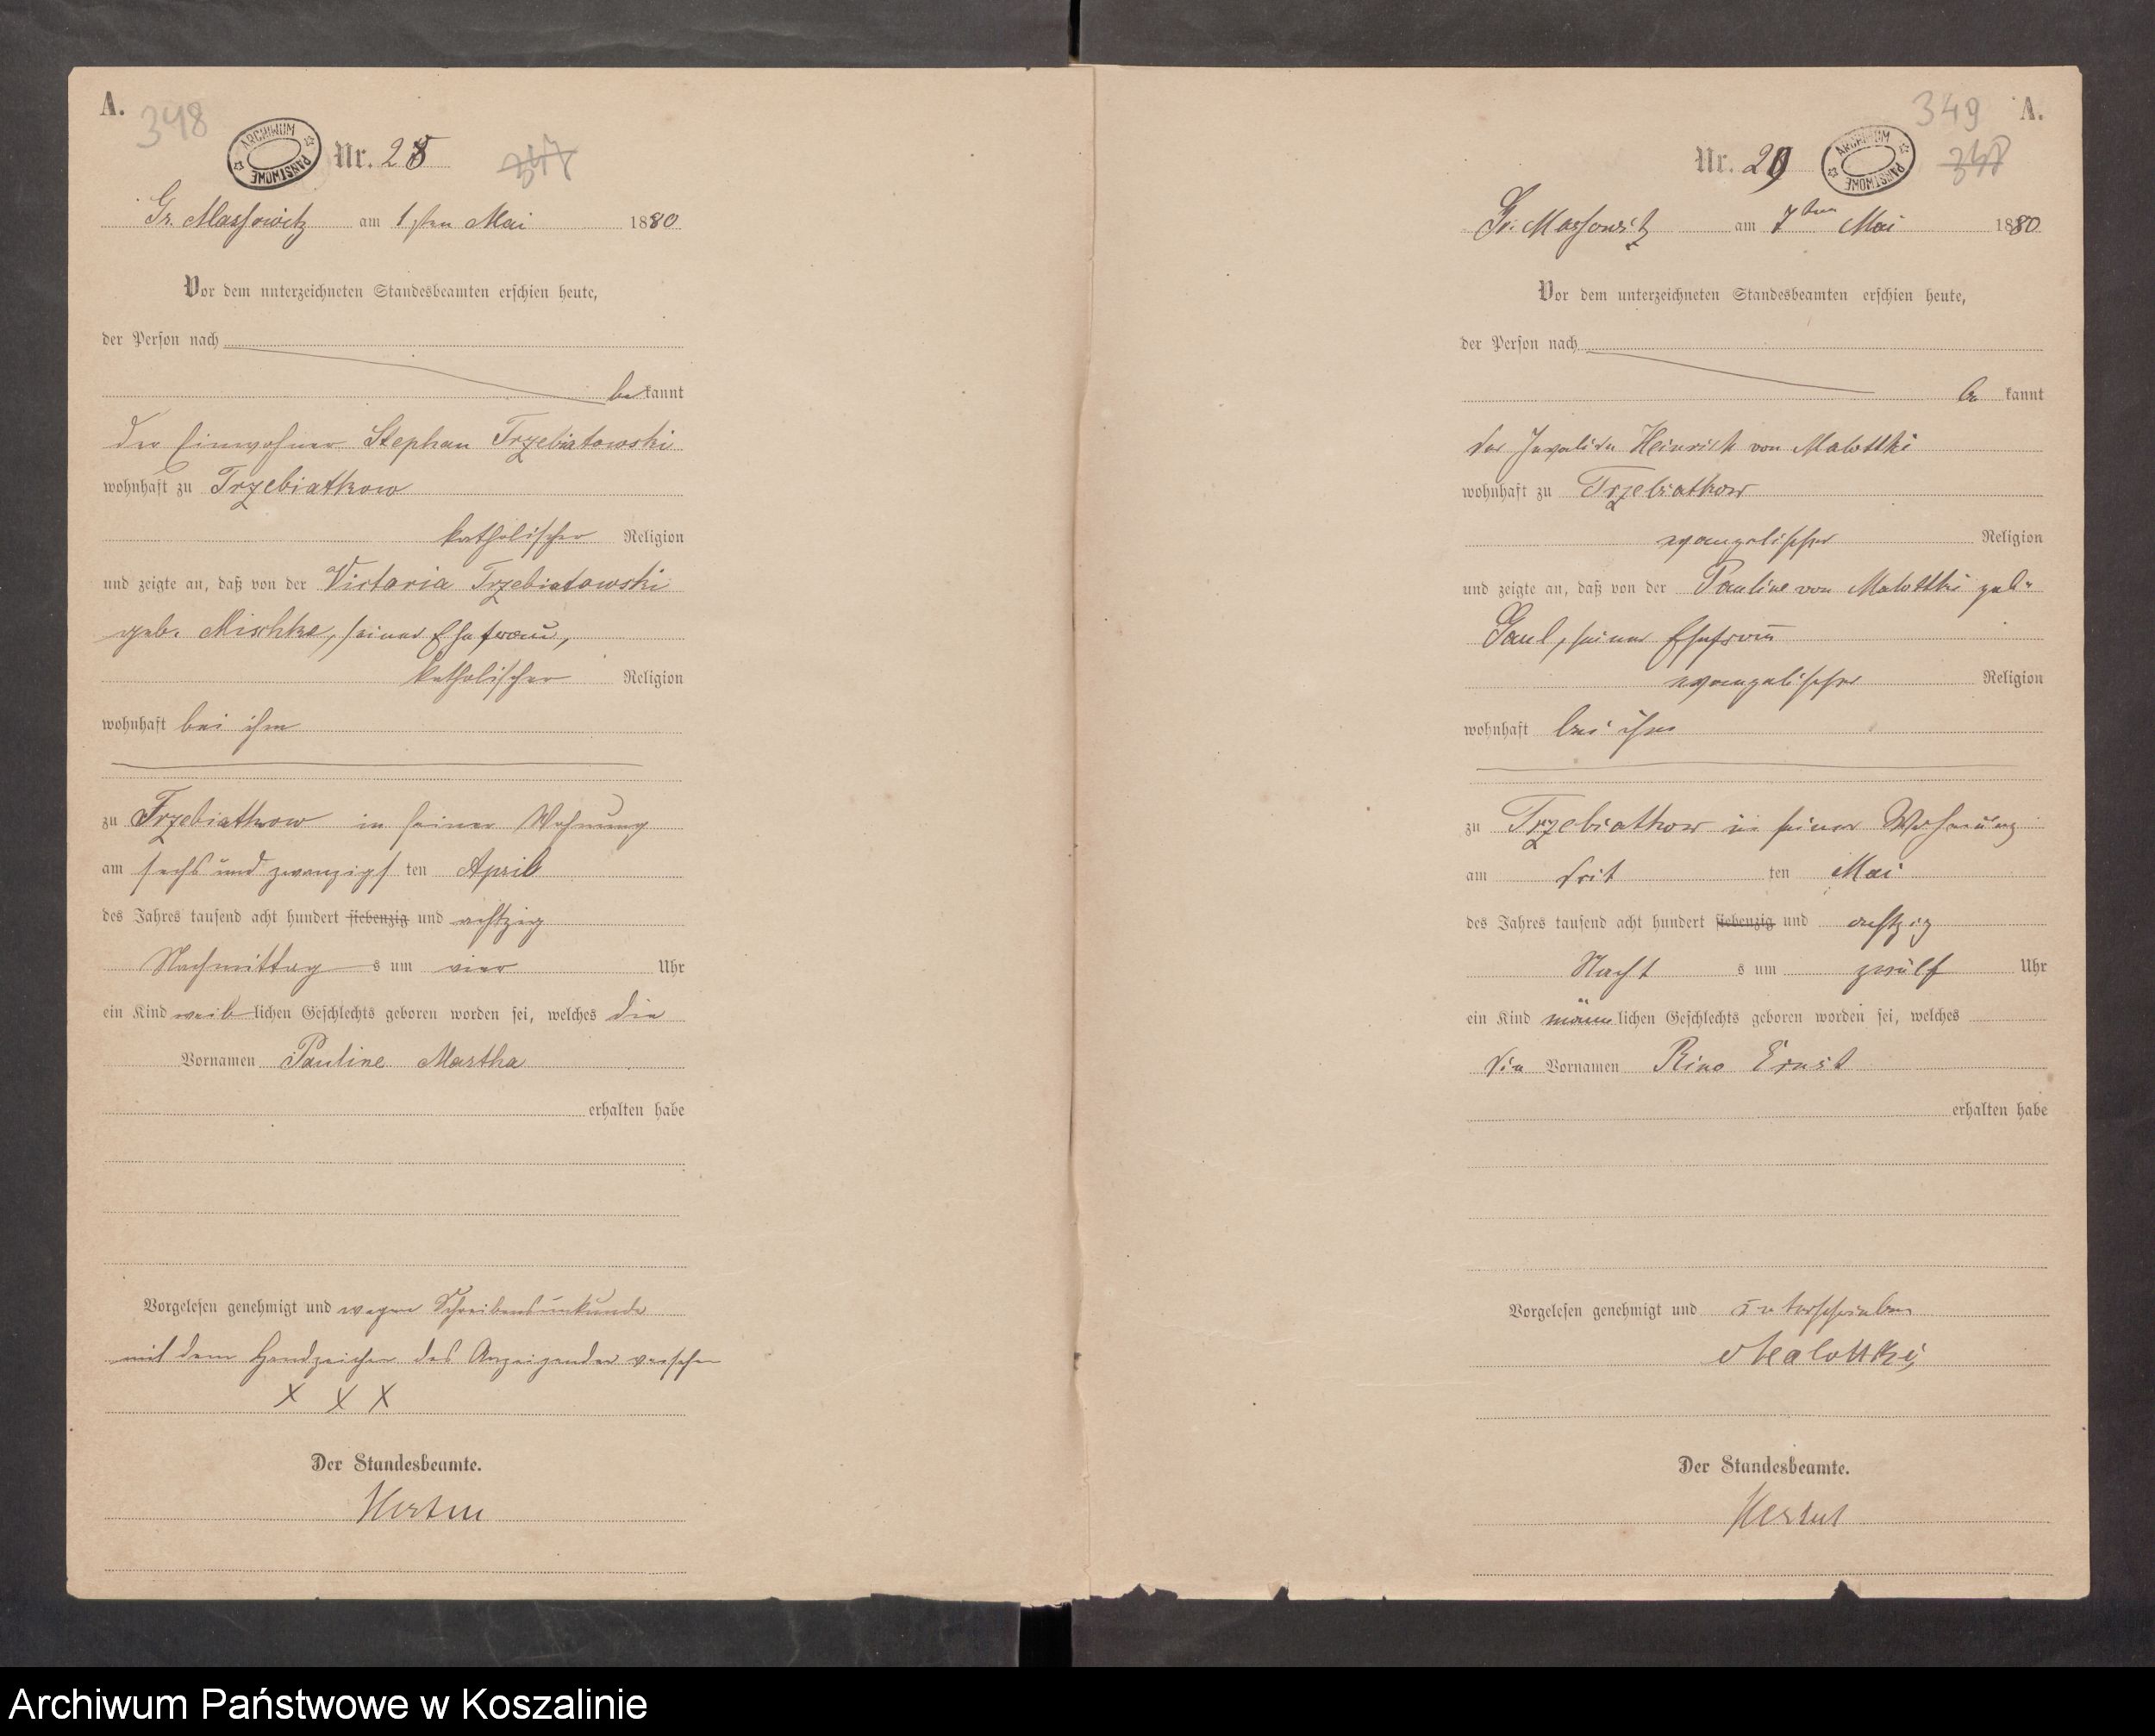 A.
348
ARCHIWUM PAŃSTWOWE
Nr. 28
347
Gr. Massowitz am 1sten Mai 1880
Vor dem unterzeichneten Standesbeamten erschien heute,
der Person nach
bekannt
der Einwohner Stephan Trzebiatowski
wohnhaft zu Trzebiatkow
katholischer Religion
und zeigte an, daß von der Victoria Trzebiatowski
geb. Mischke, seiner Ehefrau,
katholischer Religion
wohnhaft bei ihm
zu Trzebiatkow in seiner Wohnung
am sechs und zwanzigsten April
des Jahres tausend acht hundert siebenzig und achtzig
Nachmittags um vier Uhr
ein Kind weiblichen Geschlechts geboren worden sei, welches die
Vornamen Pauline Martha
erhalten habe
Vorgelesen genehmigt und wegen Schreibensunkunde
mit dem Handzeichen des Anzeigenden versehen
X X X
Der Standesbeamte.
349
A.
Nr. 29
ARCHIWUM PAŃSTWOWE
348
Gr. Massowitz am 7ten Mai 1880
Vor dem unterzeichneten Standesbeamten erschien heute,
der Person nach
bekannt
der Invalide Heinrich von Malottki
wohnhaft zu Trzebiatkow
evangelischer Religion
und zeigte an, daß von der Pauline von Malottki geb.
Gaul, seiner Ehefrau
evangelischer Religion
wohnhaft bei ihm
zu Trzebiatkow in seiner Wohnung
am dritten Mai
des Jahres tausend acht hundert siebenzig und achtzig
Nachts um zwölf Uhr
ein Kind männlichen Geschlechts geboren worden sei, welches
die Vornamen Rino Ernst
erhalten habe
Vorgelesen genehmigt und unterschrieben
v Malottki
Der Standesbeamte.
Archiwum Państwowe w Koszalinie